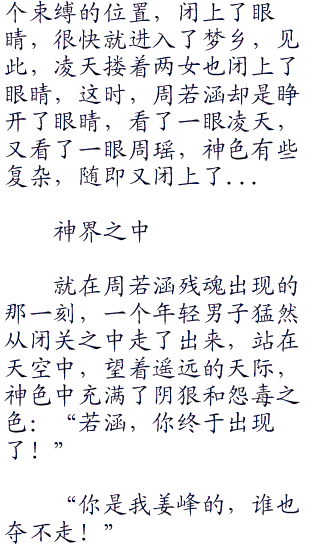 个束缚的位置，闭上了眼
睛，很快就进入了梦乡，见
此，凌天搂着两女也闭上了
眼睛，这时，周若涵却是睁
开了眼睛，看了一眼凌天，
又看了一眼周瑶，神色有些
复杂，随即又闭上了...
神界之中
就在周若涵残魂出现的
那一刻，一个年轻男子猛然
从闭关之中走了出来，站在
天空中，望着遥远的天际，
神色中充满了阴狠和怨毒之
色：“若涵，你终于出现
了！”
“你是我姜峰的，谁也
夺不走！”